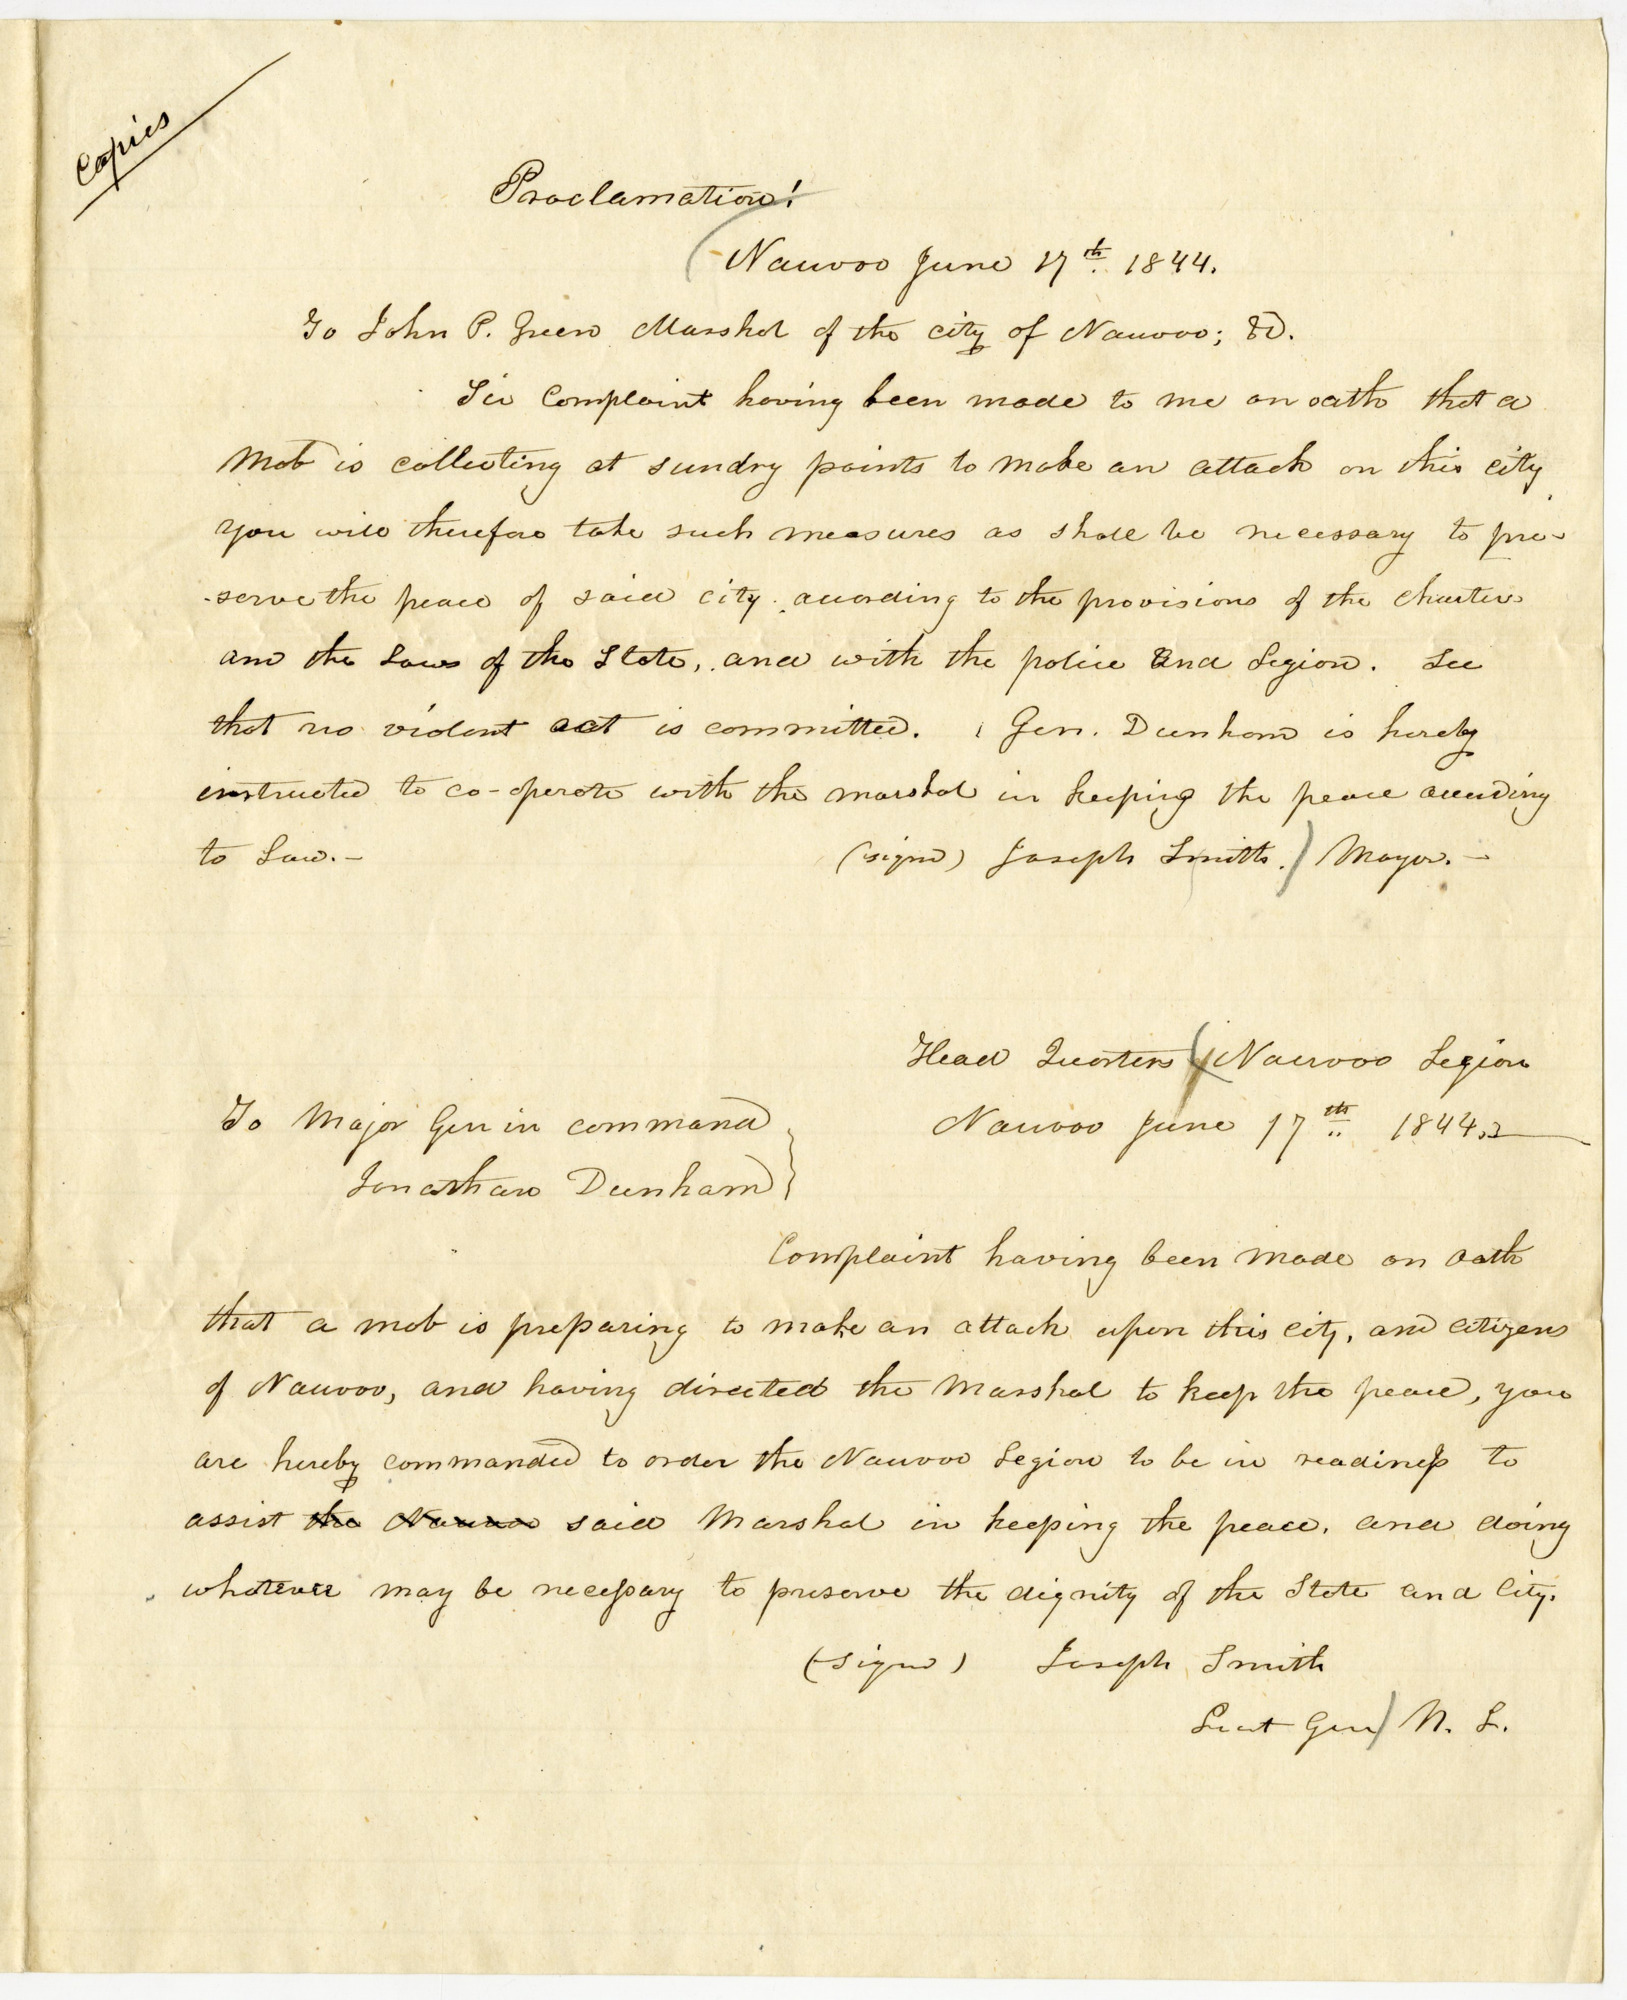 Copies
Proclamation!
Nauvoo June 17th. 1844.
To John P. Green Marshal of the city of Nauvoo; &c.
Sir Complaint having been made to me on oath that a
Mob is collecting at sundry points to make an attack on this city
you will therefore take such measures as shall be necessary to pre-
-serve the peace of said city according to the provisions of the charter
and the Laws of the State, and with the police and Legion. See
that no violent act is committed. Gen. Dunham is hereby
instructed to co-operate with the marshal in keeping the peace according
to Law.- (signd) Joseph Smith. Mayor.-
Head Quarters Nauvoo Legion
To Major Gen in command Nauvoo June 17th 1844.
Jonathan Dunham
Complaint having been made on oath
that a mob is preparing to make an attack upon this city, and citizens
of Nauvoo, and having directed the Marshal to keep the peace, you
are hereby commanded to order the Nauvoo Legion to be in readiness to
assist the Nauvoo said Marshal in keeping the peace. and doing
whatever may be necessary to preserve the dignity of the State and City.
(signd) Joseph Smith
Lieut Gen N. L.